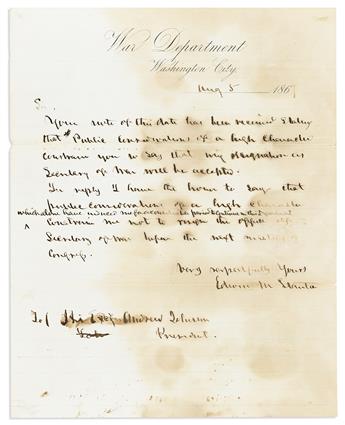 War Department
Washington City,
Aug 5 1867
Sir,
Your note of this date has been received stating
that "Public considerations of a high character
constrain you to say that my resignation as
Secretary of War will be accepted.
In reply I have the honor to say that
public considerations of a high character
which alone have induced me to continue at the head of this Department
constrain me not to resign the office of
Secretary of War before the next meeting of
Congress.
Very respectfully Yours
Edwin M Stanton
To / Andrew Johnson
President.